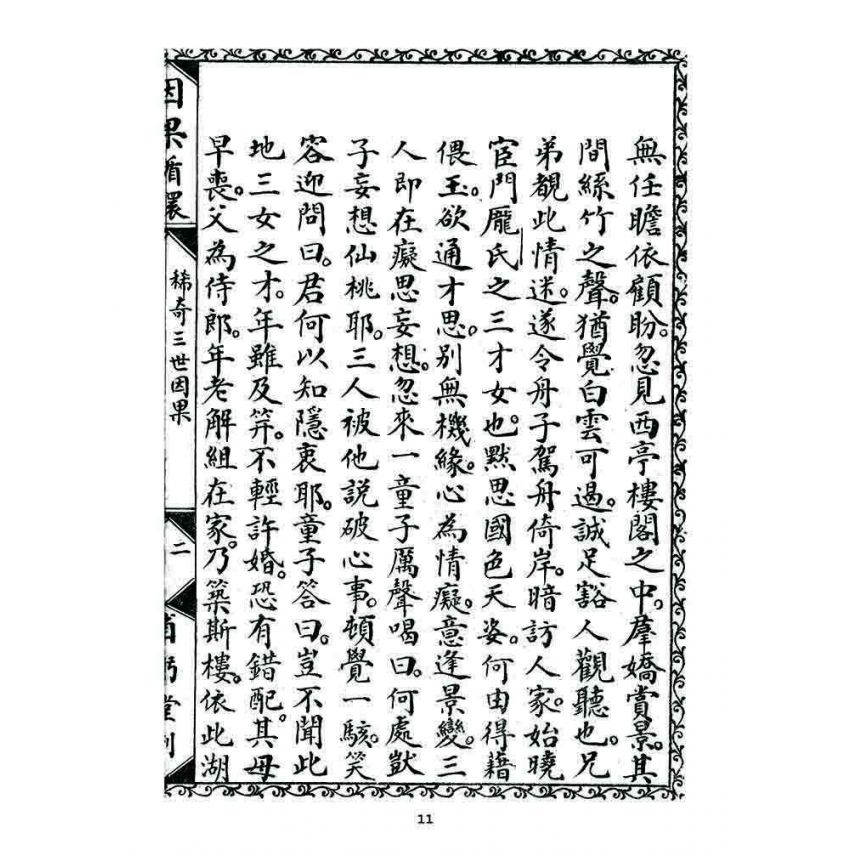 無任瞻依顧盼。忽見西亭樓閣之中。羣嬌賞景。其
間絲竹之聲。猶覺白雲可遏。誠足豁人觀聽也。兄
弟覩此情迷。遂令舟子駕舟倚岸。暗訪人家。始曉
宦門龐氏之三才女也。默思國色天姿。何由得藉
偎玉。欲通才思。別無機緣。心為情癡。意逢景變。三
人即在癡思妄想。忽來一童子厲聲喝曰。何處獃
子妄想仙桃耶。三人被他説破心事。頓覺一駭。笑
容迎問曰。君何以知隱衷耶。童子答曰。豈不聞此
地三女之才。年雖及笄。不輕許婚。恐有錯配。其母
早喪。父為侍郎。年老解組在家。乃築斯樓。依此湖
因果循環
稀奇三世因果
二
堂
11